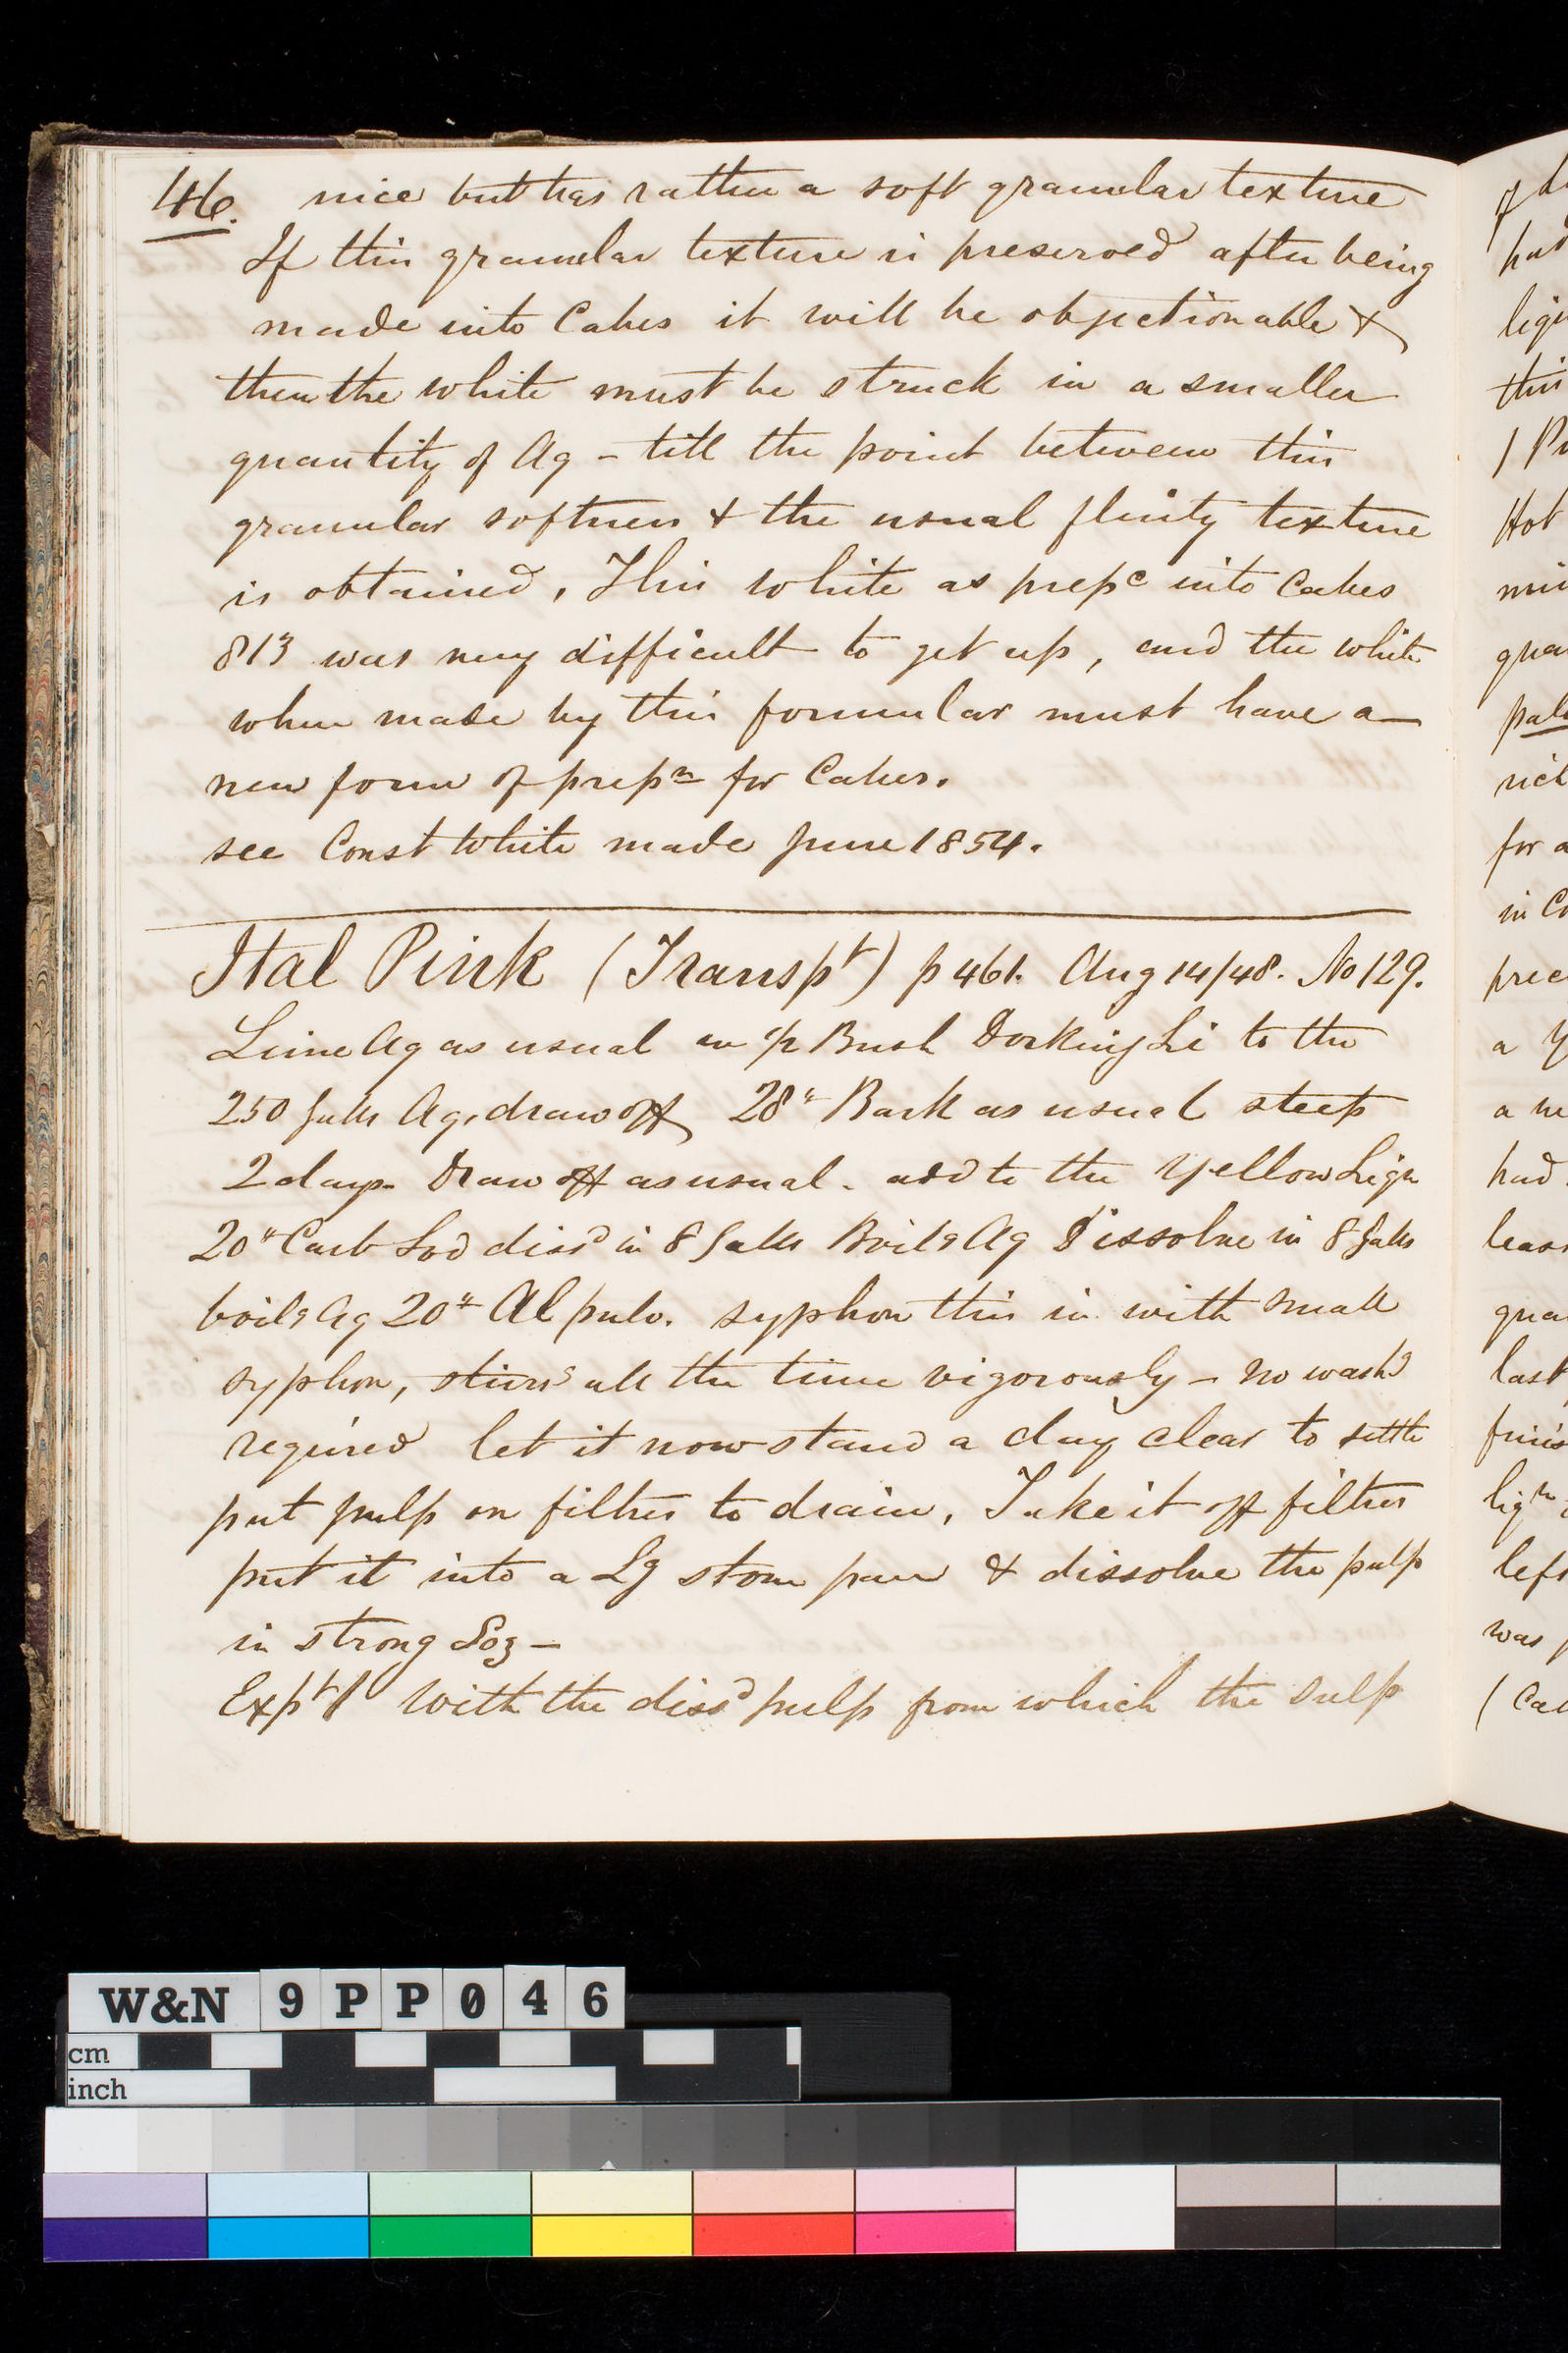 46. nice but has rather a soft granular texture
If this granular texture is preserved after being
made into Cakes it will be objectionable &
then the white must be struck in a smaller
quantity of Aq – till the point between this
granular softness & the usual flinty texture
is obtained, This white as prepd into Cakes
813 was very difficult to get up, and the white
when made by this formular must have a
new form of prepn for Cakes.
see Const White made June 1854.
Ital Pink (Transpt) p 461. Aug 14/48. No 129.
Lime Aq as usual w ½ Bush Dorking Li to the
250 Galls Aq, draw off 28" Bark as usual steep
2 days. Draw off as usual. add to the Yellow Liqr
20" Carb Sod dissd in 8 Galls Boilg Aq Dissolve in 8 Galls
boilg Aq 20" Al pulv. syphon this in with small
syphon, stirrg all the time vigorously – no washg
required let it now stand a day clear to settle
put pulp on filters to drain, Take it off filters
put it into a Lg stone pan & dissolve the pulp
in strong
Expt 1 With the dissd pulp from which the sulp
this
Hot
for a
in
prec
a
had
last
left
was
W&N 9PP046
cm
inch